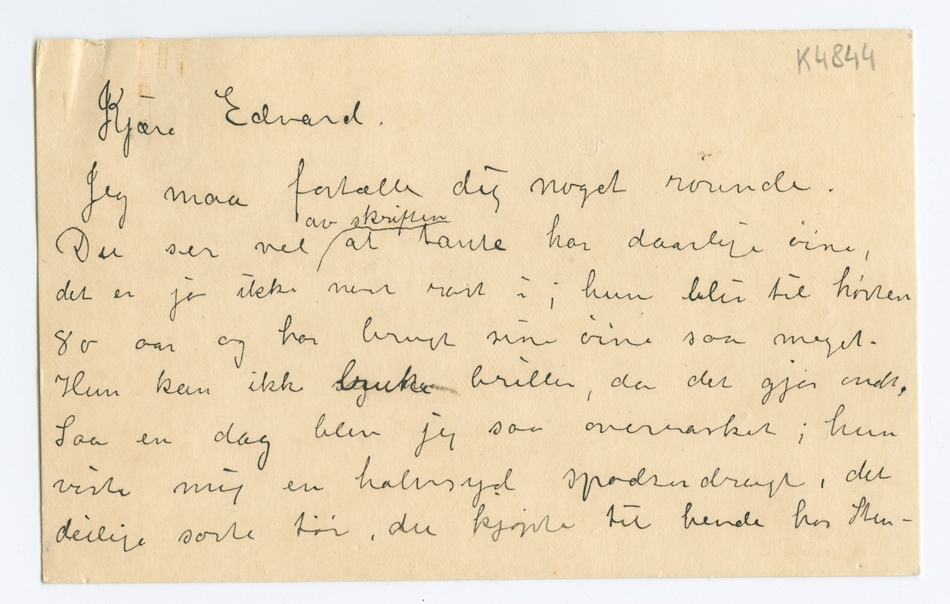 K4844
Kjære Edvard.
Jeg maa fortælle dig noget rörende.
av skriften
Du ser vel at tante har daarlige öine,
det er jo ikke noet rart i; hun blir til hösten
80 aar og har brugt sine öine saa meget.
Hun kan ikke bruke briller, da det gjör ondt.
Saa en dag blev jeg saa overrasket; hun
viste mig en halvsyd spadserdragt, det
deilige sorte töi, du kjöpte til hende hos Sten-